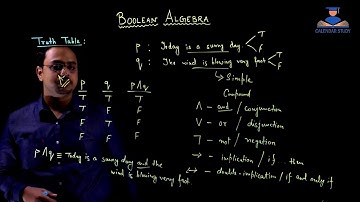 BOOLEAN ALGEBRA
CALENDAR STUDY
Truth Table:
p : Today is a sunny day. T
F
q : The wind is blowing very fast T
F
→ Simple
Compound
p q p∧q
T T T
T F F
F T F
F F F
∧ - and / conjunction
∨ - or / disjunction
⅂ - not / negation
→ - implication / if then
↔ - double-implication / if and only if
p ∧ q ≡ Today is a sunny day and the
wind is blowing very fast